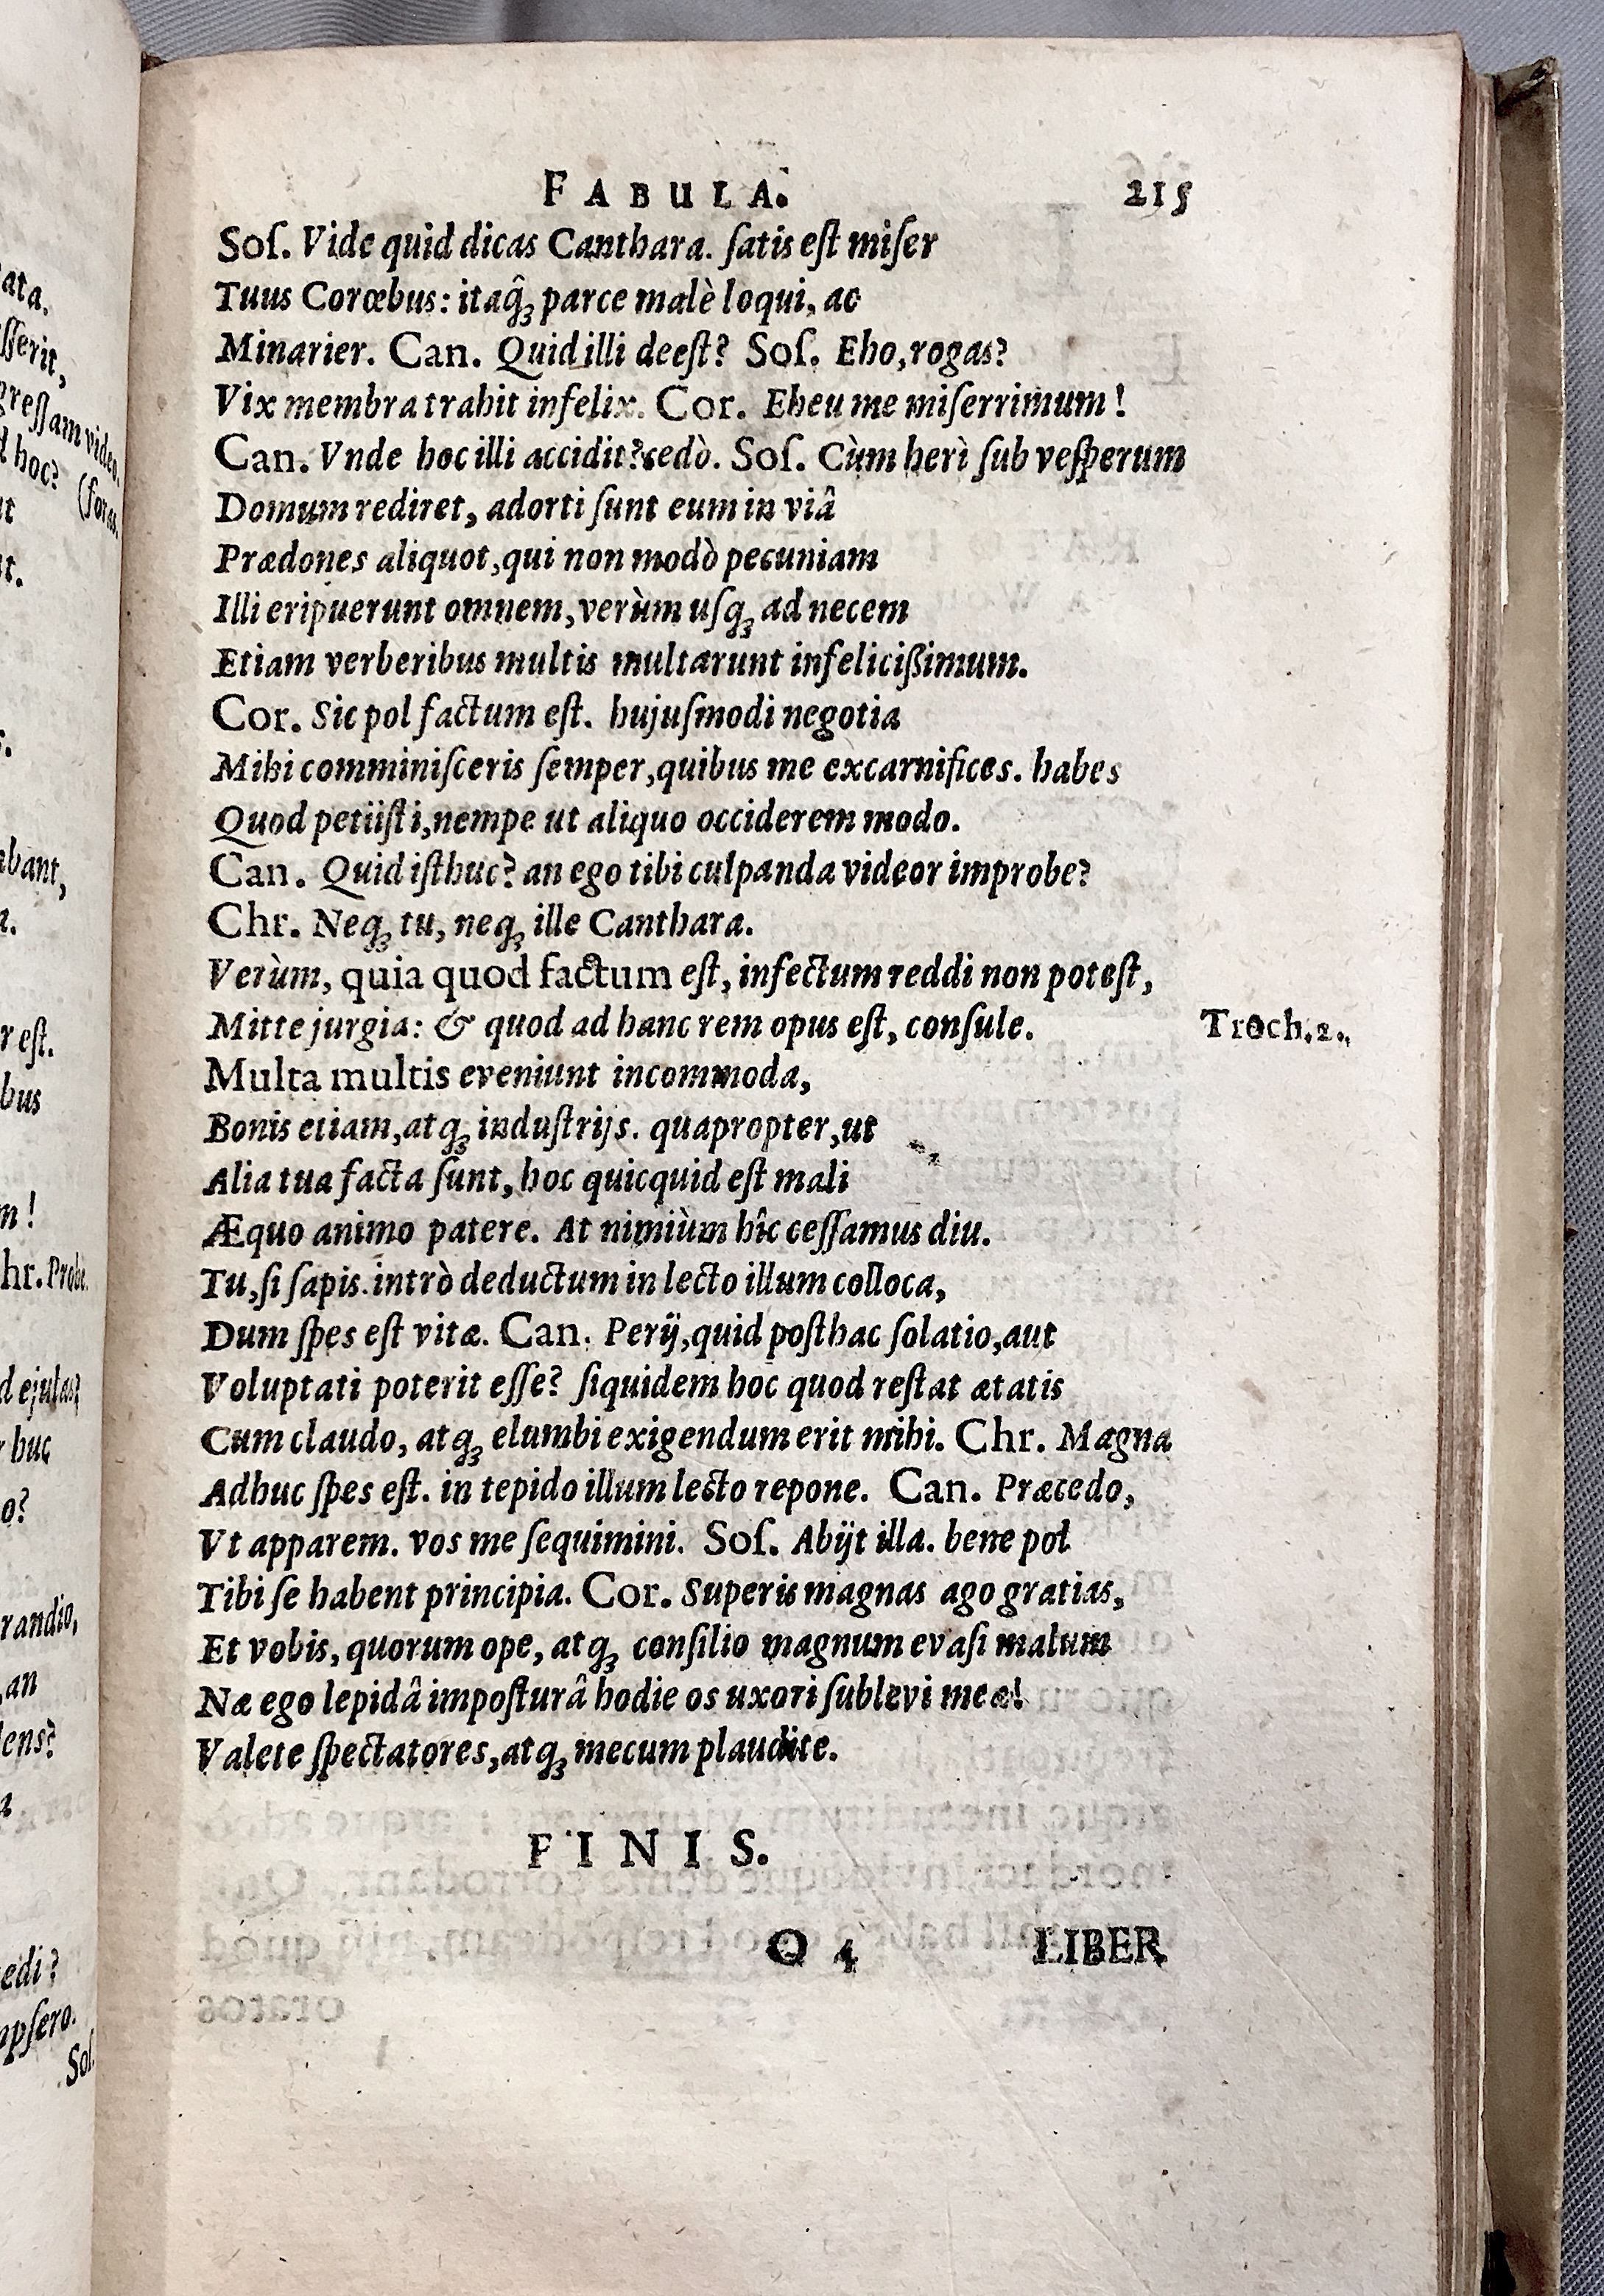 FABULA. 215
Soſ. Vide quid dicas Canthara. ſatis eſt miſer
Tuus Corœbus: itaq̃ʒ parce malè loqui, ac
Minarier. Can. Quid illi deeſt? Soſ. Eho, rogas?
Vix membra trahit infelix. Cor. Eheu me miſerrimum!
Can. Vnde hoc illi accidit? cedò. Soſ. Cùm herì ſub veſperum
Domum rediret, adorti ſunt eum in viâ
Prædones aliquot, qui non modò pecuniam
Illi eripuerunt omnem, verùm uſqʒ ad necem
Etiam verberibus multis multarunt infelicißimum.
Cor. Sic pol factum eſt. hujuſmodi negotia
Mihi comminiſceris ſemper, quibus me excarnifices. habes
Quod petiiſti, nempe ut aliquo occiderem modo.
Can. Quid iſthuc? an ego tibi culpanda videor improbe?
Chr. Neqʒ tu, neqʒ ille Canthara.
Verùm, quia quod factum eſt, infectum reddi non poteſt,
Mitte jurgia: & quod ad hanc rem opus eſt, conſule. Troch. 2.
Multa multis eveniunt incommoda,
Bonis etiam, atqʒ induſtrijs. quapropter, ut
Alia tua facta ſunt, hoc quicquid eſt mali
Æquo animo patere. At nimiùm hîc ceſſamus diu.
Tu, ſi ſapis. intrò deductum in lecto illum colloca,
Dum ſpes eſt vitæ. Can. Perij, quid poſthac ſolatio, aut
Voluptati poterit eſſe? ſiquidem hoc quod reſtat ætatis
Cum claudo, atqʒ elumbi exigendum erit mihi. Chr. Magna
Adhuc ſpes eſt. in tepido illum lecto repone. Can. Præcedo,
Vt apparem. vos me ſequimini. Soſ. Abijt illa. bene pol
Tibi ſe habent principia. Cor. Superis magnas ago gratias,
Et vobis, quorum ope, atqʒ conſilio magnum evaſi malum
Næ ego lepidâ impoſturâ hodie os uxori ſublevi meæ!
Valete ſpectatores, atqʒ mecum plaudite.
FINIS.
Q 4 LIBER